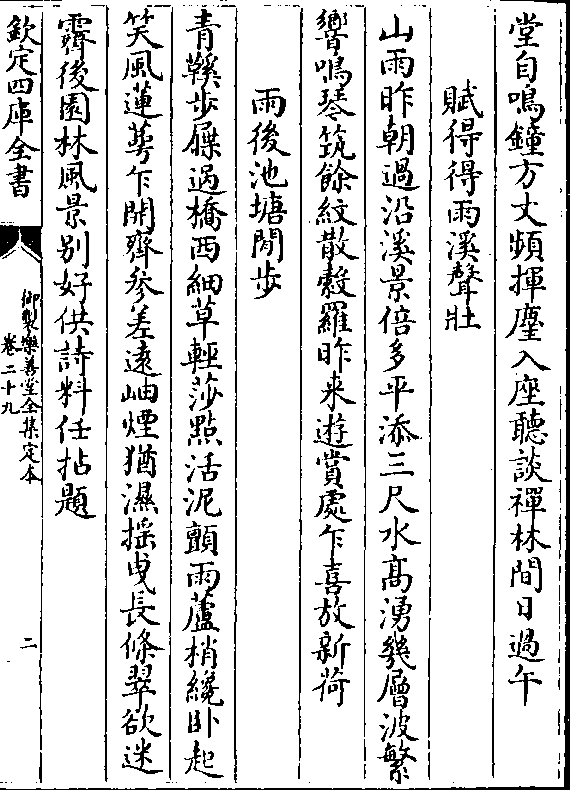 堂自鳴鐘方丈頻揮麈入座聽談禪林間日過午
賦得得雨溪聲壯
山雨昨朝過沿溪景倍多平添三尺水髙湧幾層波繁
響鳴琴筑餘紋散縠羅昨来遊賞處乍喜放新荷
雨後池塘閒步
青鞵步屧過橋西細草輕莎點活泥顫雨蘆梢纔卧起
笑風蓮萼乍開齊參差遠岫煙猶濕揺曵長條翠欲迷
霽後園林風景别好供詩料任拈題
欽定四庫全書
御製樂善堂全集定本
卷二十九
二